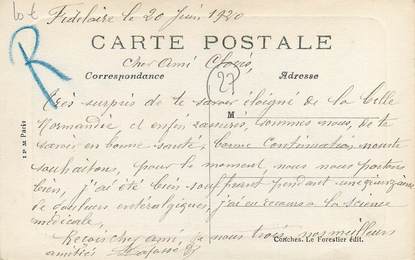 lot
Fidelaire le 20 Juin 1920
CARTE POSTALE
Cher Ami Clovis,
Correspondance
Adresse
R
27
Très surpris de te savoir éloigné de la belle
M
Normandie et enfin rassurés, sommes nous, de te
savoir en bonne santé, bonne continuation nous te
souhaitons, pour le moment, nous nous portons
bien, j'ai été bien souffrant pendant une quinzaine
de douleurs entéralgiques, j'ai eu recours à la science
médicale,
Reçois cher ami, de nous trois, nos meilleurs
amitiés
Conches. Le Forestier édit.
I P M Paris